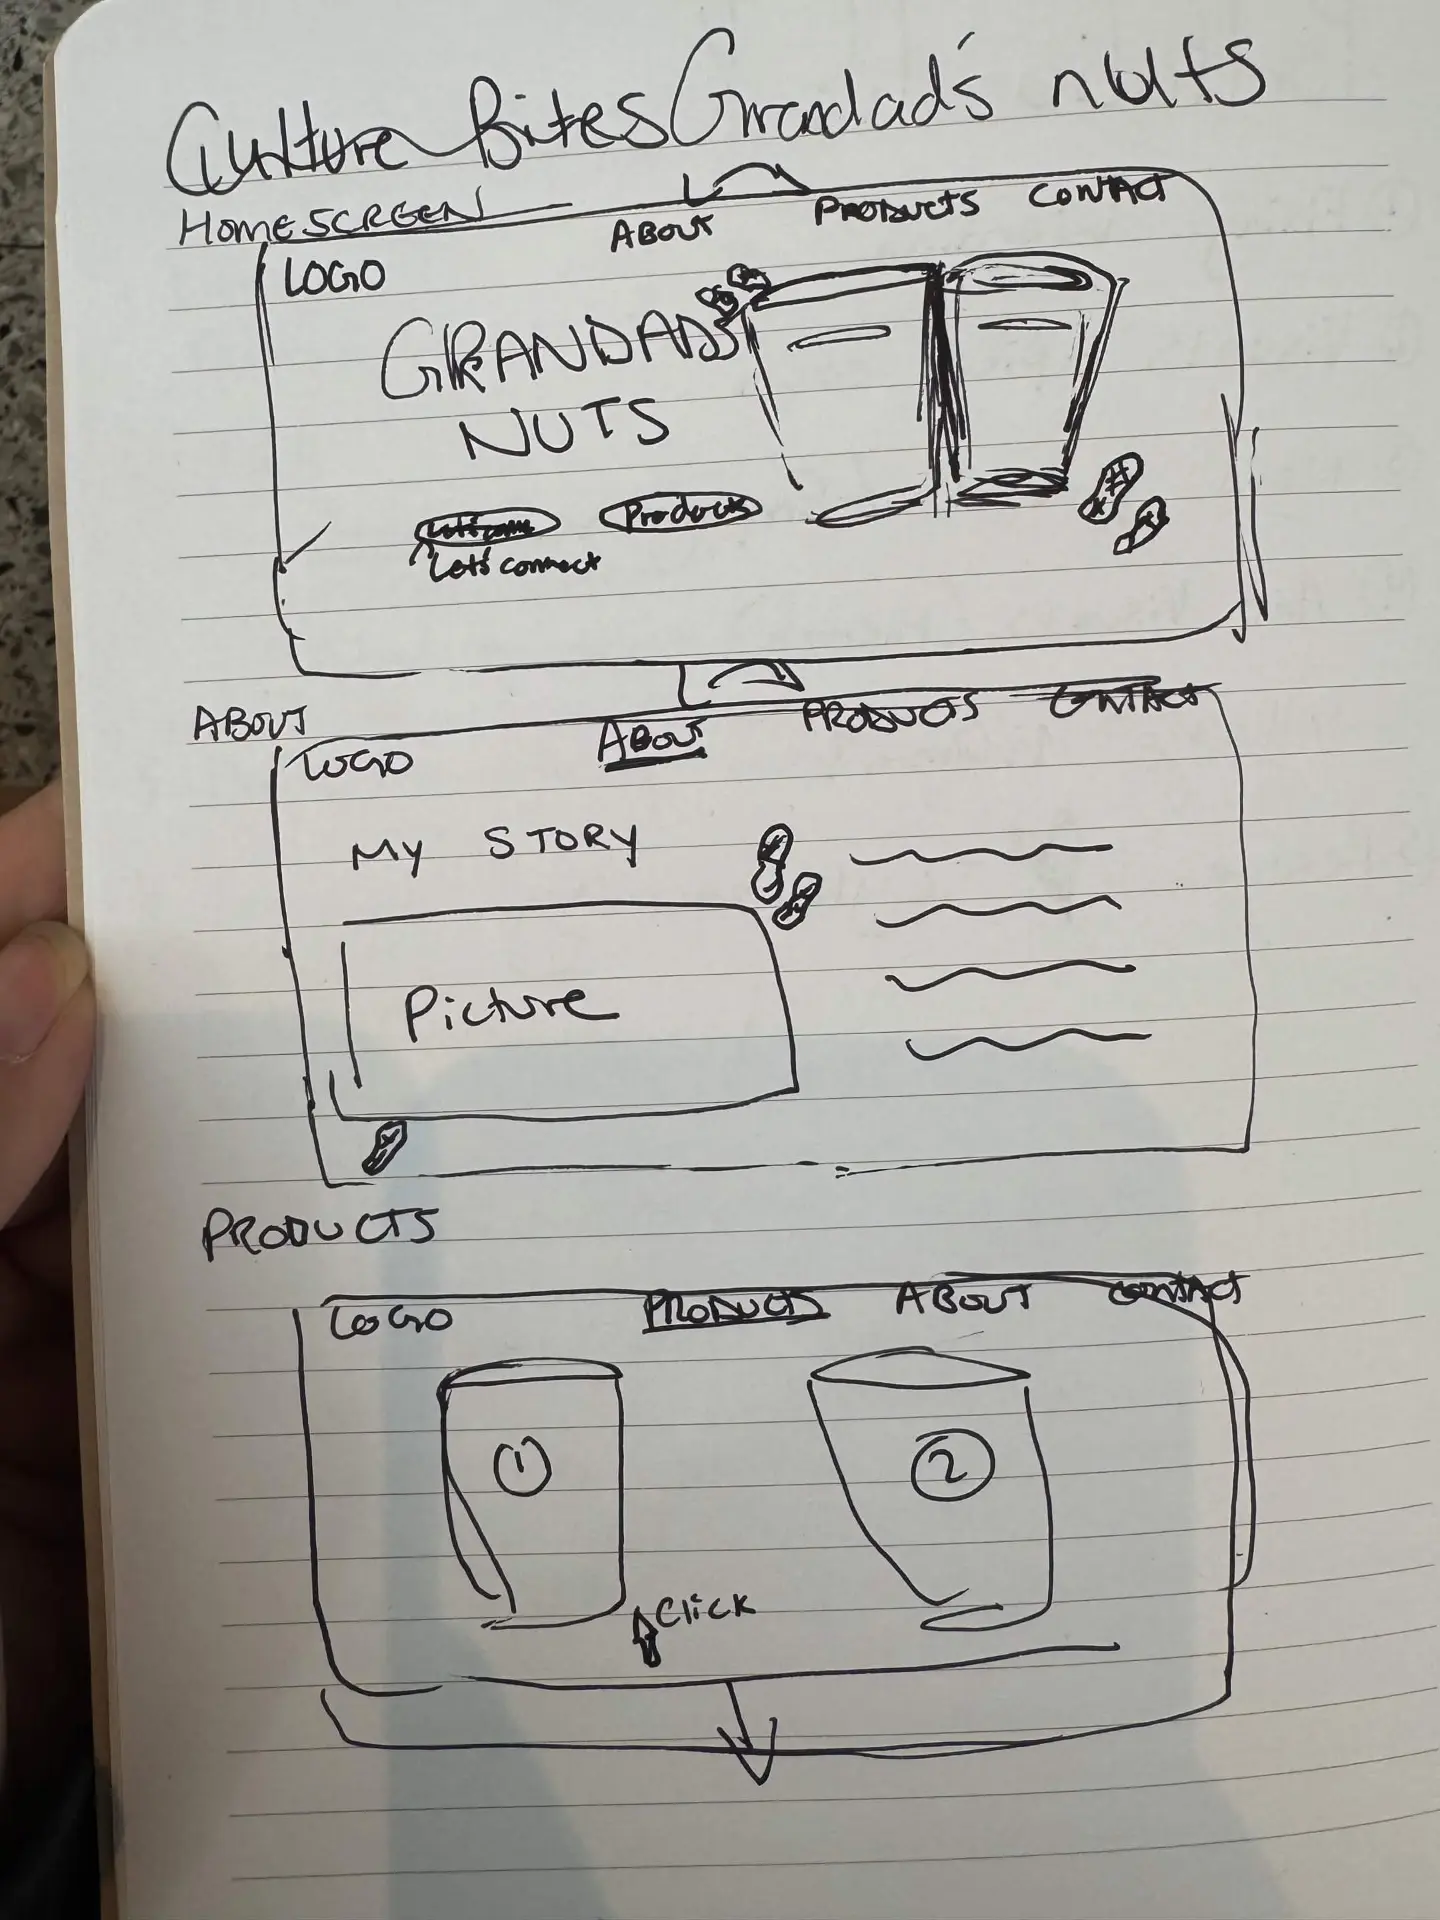 Culture Bites Grandad's nuts
HOMESCREEN
ABOUT PRODUCTS CONTACT
LOGO
GRANDADS
NUTS
Products
Let's connect
ABOUT
ABOUT PRODUCTS CONTACT
LOGO
MY STORY
Picture
PRODUCTS
LOGO PRODUCTS ABOUT CONTACT
1 2
Click